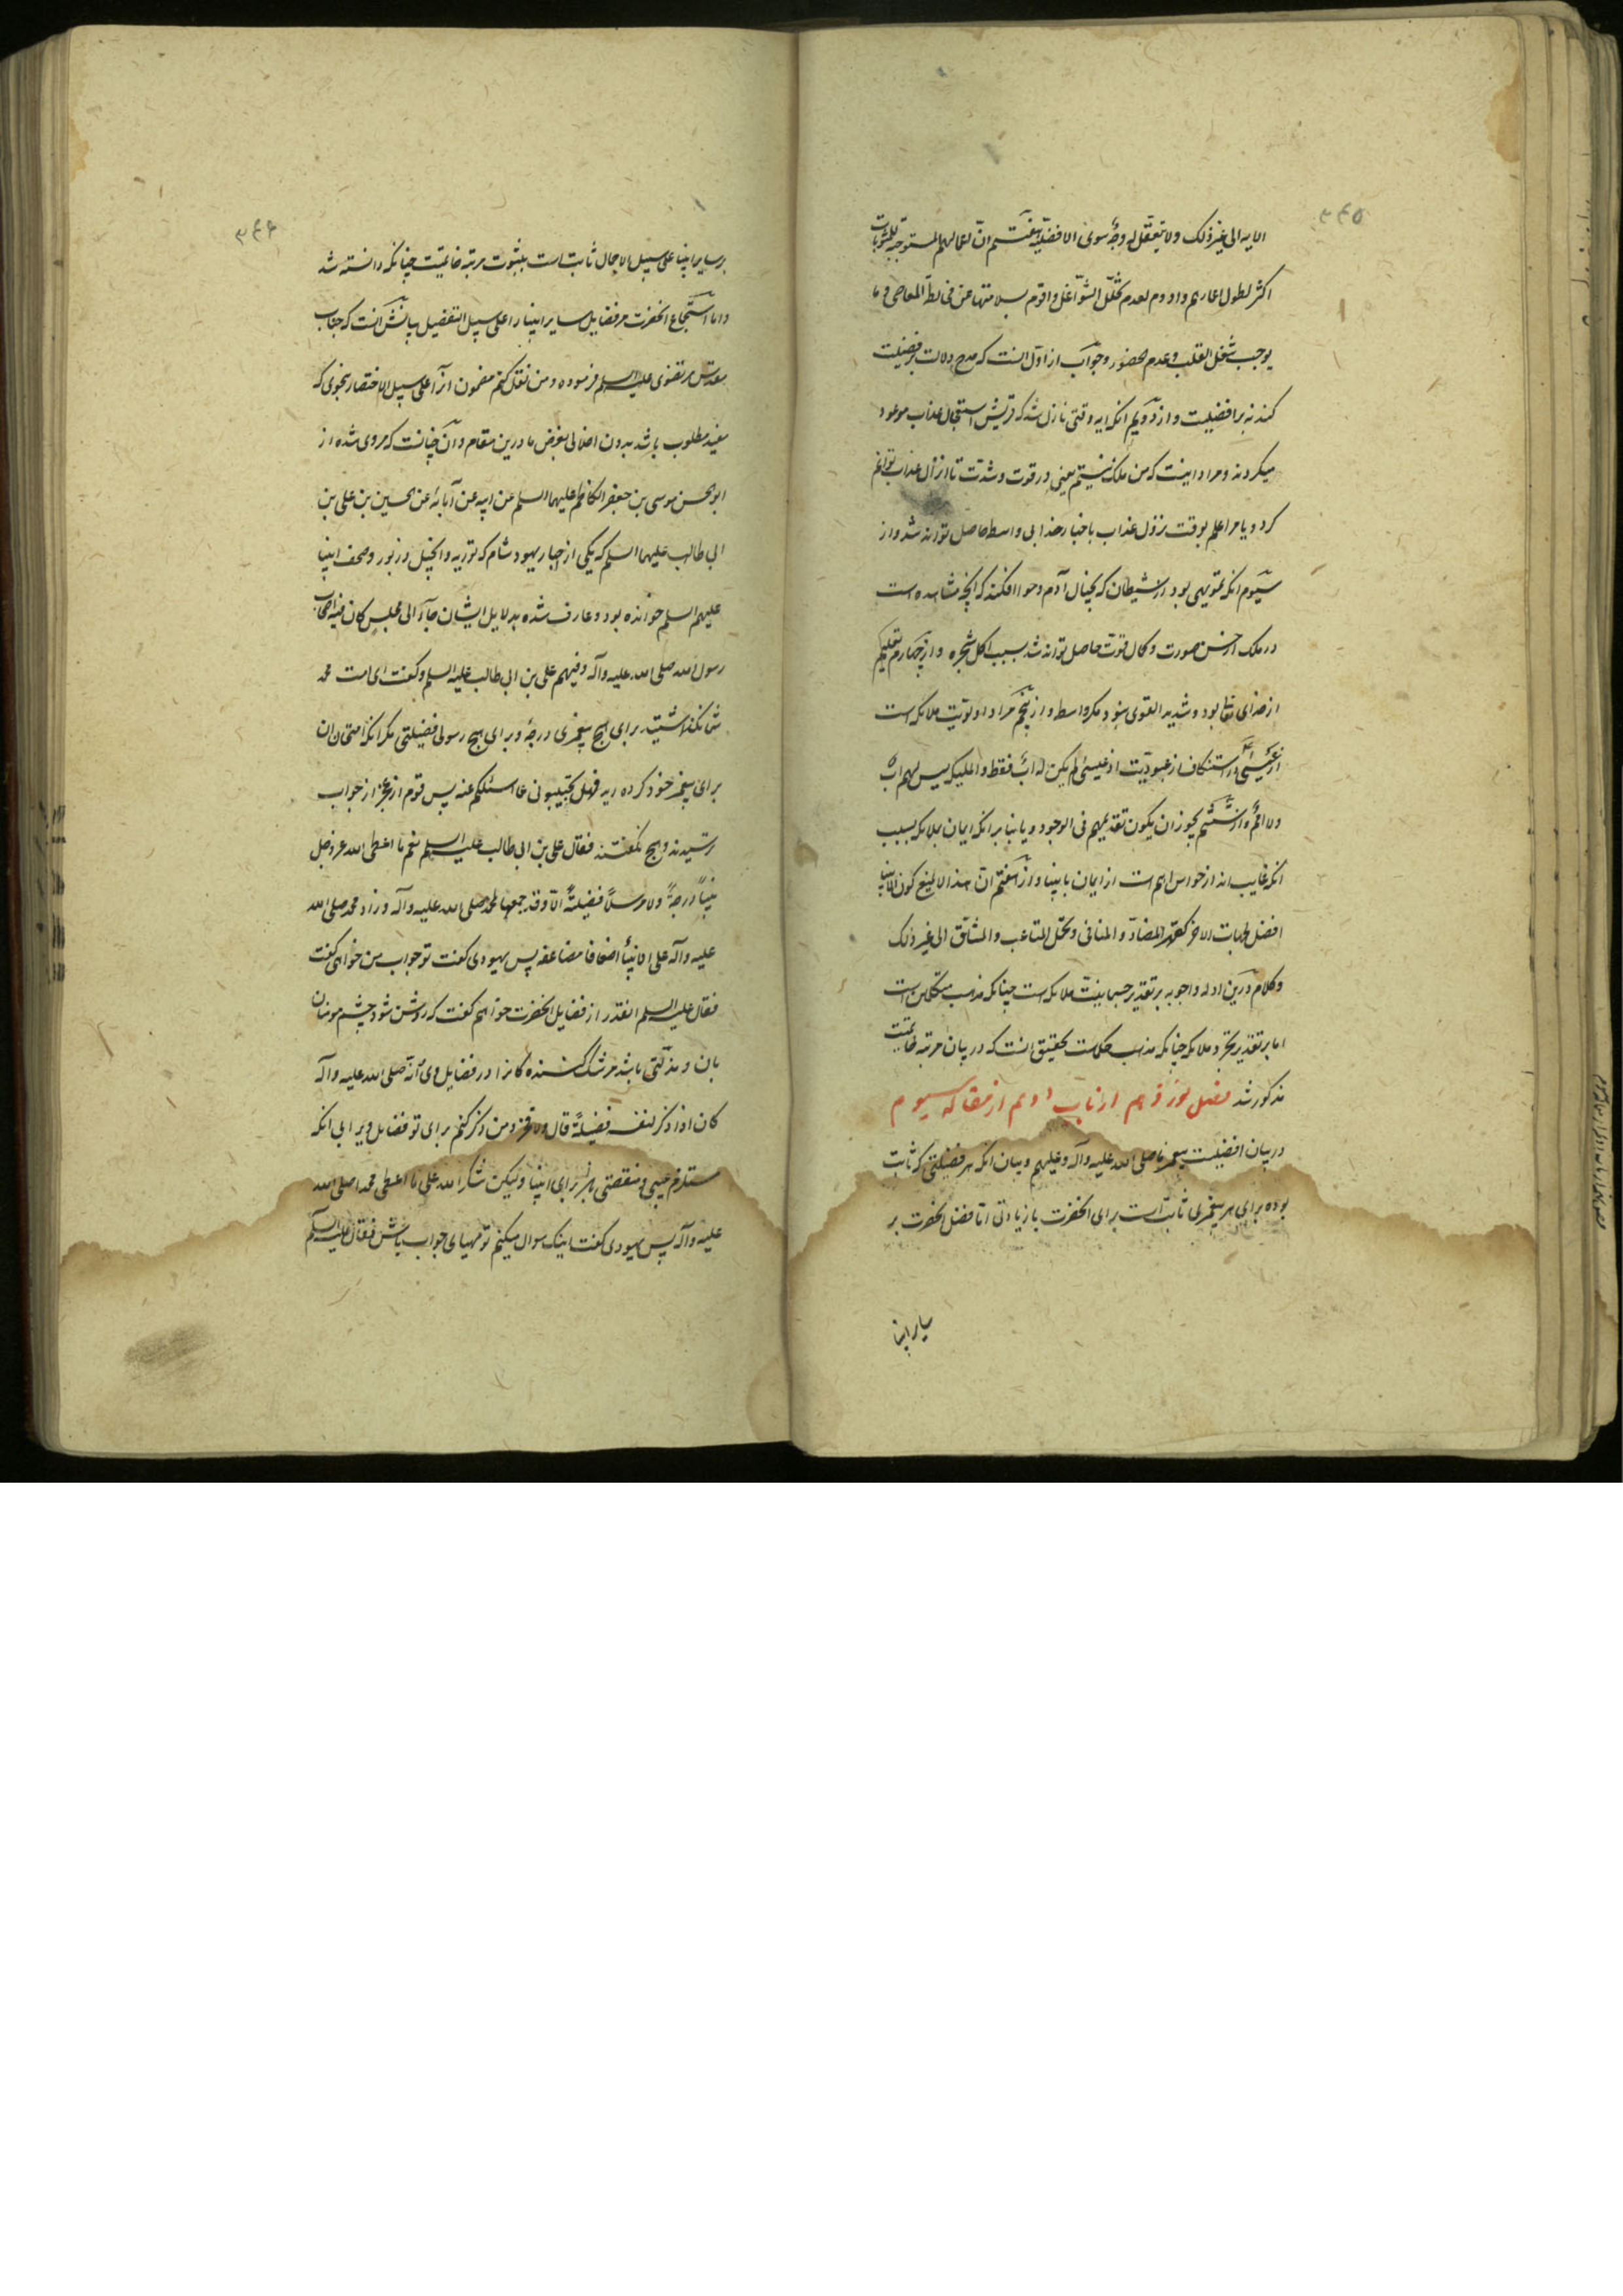 ۳۴۵
الایه الی غیر ذلک ولا یتعقل له وجهٌ سوی الافضلیه هفتم ان اعمالهم المستوجبة للمثوبات
اکثر لطول اعمارهم وادوم لعدم تخلّل الشواغل واقوم لسلامتها عن مخالطة المعاصی و ما
یوجب شغل القلب وعدم الحضور وجواب از اوّل انست که مدح دلالت بر فضیلت
کند نه بر افضلیت و از دویم انکه ایه وقتی نازل شد که قریش استعجال عذاب موعود
میکردند و مراد اینست که من ملک نیستم یعنی در قوت و شدّت تا انزال عذاب توانم
کرد و یا مرا علم بوقت نزول عذاب باخبار خدا بی واسطه حاصل تواند شد و از
سیّوم انکه تمویهی بود از شیطان که بخیال آدم و حوا افکند که انچه مشاهده است
در ملک از حسن صورت و کمال قوّت حاصل تواند شد بسبب اکل شجره و از چهارم تعلیم
از خدای تعالی بود و شدید القوی نبود مگر واسطه و از پنجم مراد اولویّت ملائکه است
از عیسی در استنکاف از عبودیّت اذ عیسی لم یکن له ابٌ فقط و الملئکه لیس لهم اب
ولا امٌّ و از ششم یجوز ان یکون تقدیمهم فی الوجود و یا بنا بر انکه ایمان بملائکه بسبب
انکه غایب اند از حواس اهم است از ایمان بانبیا و از هفتم انّ هذا لا یمنع کون الانبیا
افضل بجهات الاخر کقهر المضادّ و المنافی و تحمّل المتاعب والمشاقّ الی غیر ذلک
و کلام درین ادله و اجوبه بر تقدیر جسمانیّت ملائکه است چنانکه مذهب متکلمین است
اما بر تقدیر تجرّد ملائکه چنانکه مذهب حکماست تحقیق انست که در بیان مرتبه خاتمیّت
مذکور شد فصل نوزدهم از باب دویم از مقاله سیوم
در بیان افضلیت پیغمبر ما صلی الله علیه وآله وعلیهم و بیان انکه هر فضیلتی که ثابت
بوده برای هر پیغمبری ثابت است برای انحضرت با زیادتی امّا فضل انحضرت بر
سایر انبیا
۳۴۶
بر سایر انبیا علی سبیل الاجمال ثابت است بثبوت مرتبه خاتمیّت چنانکه دانسته شد
و اما استجماع انحضرت مر فضایل سایر انبیا را علی سبیل التفضیل بیانش انست که جناب
مقدس مرتضوی علیه السلم فرموده و من نقل کنم مضمون انرا علی سبیل الاختصار بنحوی که
مفید مطلوب باشد بدون اخلالی بغرض ما درین مقام و آن چنانست که مروی شده از
ابو الحسن موسی بن جعفر الکاظم علیهما السلم عن ابیه عن آبائه عن الحسین بن علی بن
ابی طالب علیهما السلم که یکی از احبار یهود شام که توریه و انجیل و زبور و صحف انبیا
علیهم السلم خوانده بود و عارف شده بدلایل ایشان جاء الی مجلس کان فیه اصحاب
رسول الله صلی الله علیه وآله وفیهم علی بن ابی طالب علیه السلم و گفت ای امت محمد
شما نگذاشتید برای هیچ پیغمبری درجهٔ و برای هیچ رسولی فضیلتی مگر انکه امتحان ان
برای پیغمبر خود کرده اید فهل تجیبونی عما اسئلکم عنه پس قوم از عجز از جواب
ترسیدند و هیچ نگفتند فقال علی بن ابی طالب علیه السلم نعم ما اعطی الله عز وجل
نبیّاً درجةً ولا مرسلاً فضیلةً الا وقد جمعها لمحمد صلی الله علیه وآله وزاد محمد صلی الله
علیه وآله علی الانبیاء اضعافا مضاعفه پس یهودی گفت تو جواب من خواهی گفت
فقال علیه السلم انقدر از فضایل انحضرت خواهم گفت که روشن شود چشم مومنان
بان و مذلّتی باشد مر شک کننده گانرا در فضایل وی انّه صلی الله علیه وآله
کان اذا ذکر لنفسه فضیلةً قال ولا فخر و من ذکر کنم برای تو فضایل ویرا بی انکه
مستلزم عیبی و منقصتی باشد برای انبیا ولیکن شکراً لله علی ما اعطی محمدا صلی الله
علیه وآله پس یهودی گفت اینک سوال میکنم تو مهیای جواب باش فقال علیه السلم